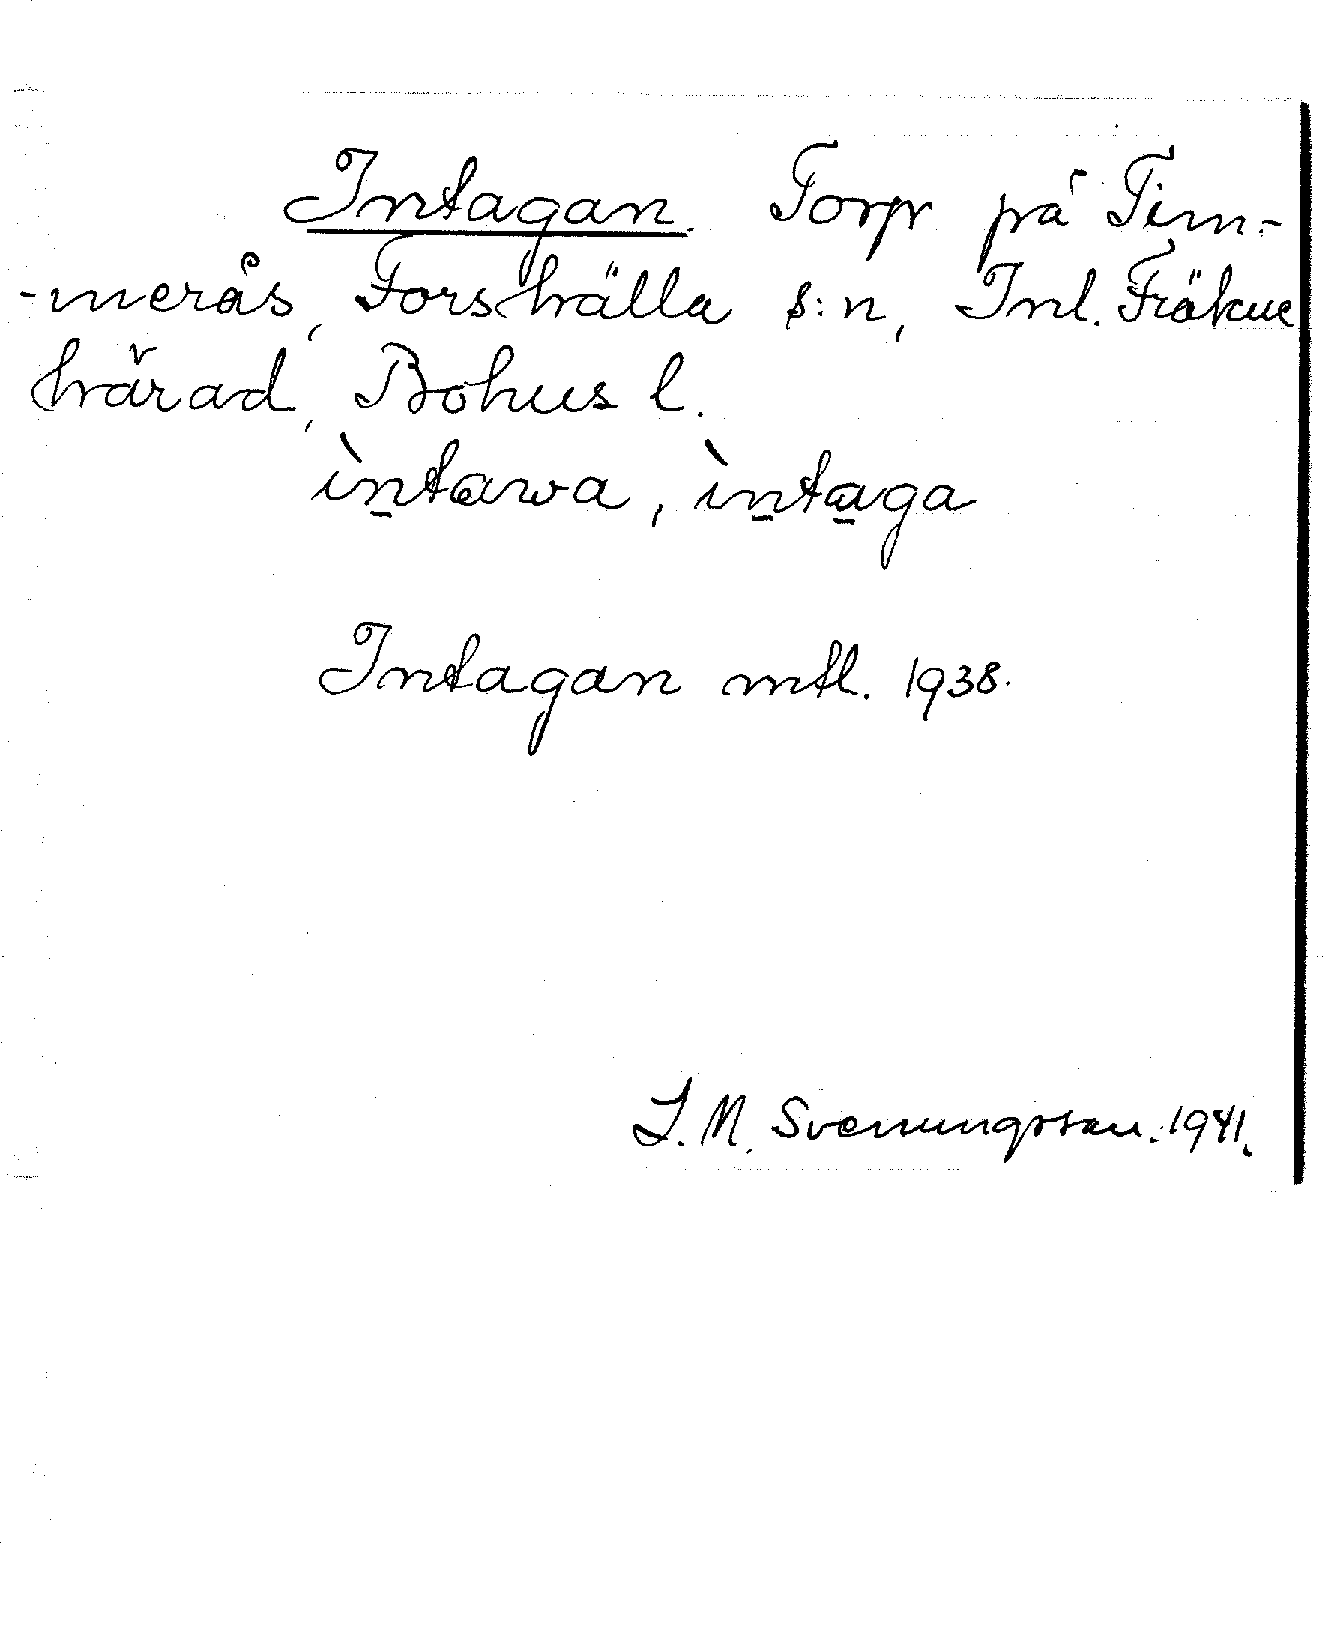 Intagan. Torp på Tim-
-merås, Forshälla s:n, Inl. Fräkne
härad, Bohus l.
ìn̠tawa, ìn̠ta̠ga
Intagan mtl. 1938.
S. M. Svenungsson. 1941.